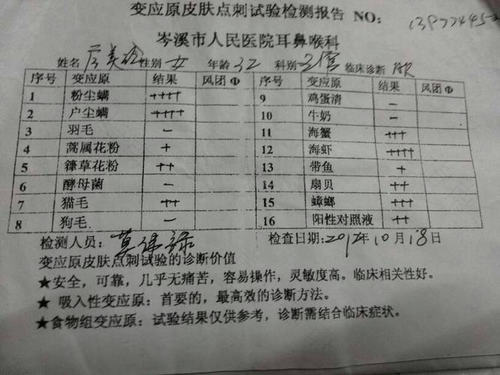 变应原皮肤点刺试验检测报告 NO:
岑溪市人民医院耳鼻喉科
姓名 性别 女 年龄 32 科别 临床诊断 AR
序号 变应原 结果 风团 Φ 序号 变应原 结果 风团 Φ
1 粉尘螨 ++++ 9 鸡蛋清 —
2 户尘螨 ++++ 10 牛奶 —
3 羽毛 — 11 海蟹 +++
4 蒿属花粉 + 12 海虾 ++++
5 葎草花粉 ++ 13 带鱼 +
6 酵母菌 — 14 扇贝 ++
7 猫毛 ++ 15 蟑螂 +++
8 狗毛 — 16 阳性对照液 +++
检测人员: 检查日期: 2012年10月18日
变应原皮肤点刺试验的诊断价值
★安全，可靠，几乎无痛苦，容易操作，灵敏度高。临床相关性好。
★ 吸入性变应原：首要的，最高效的诊断方法。
★食物组变应原：试验结果仅供参考，诊断需结合临床症状。